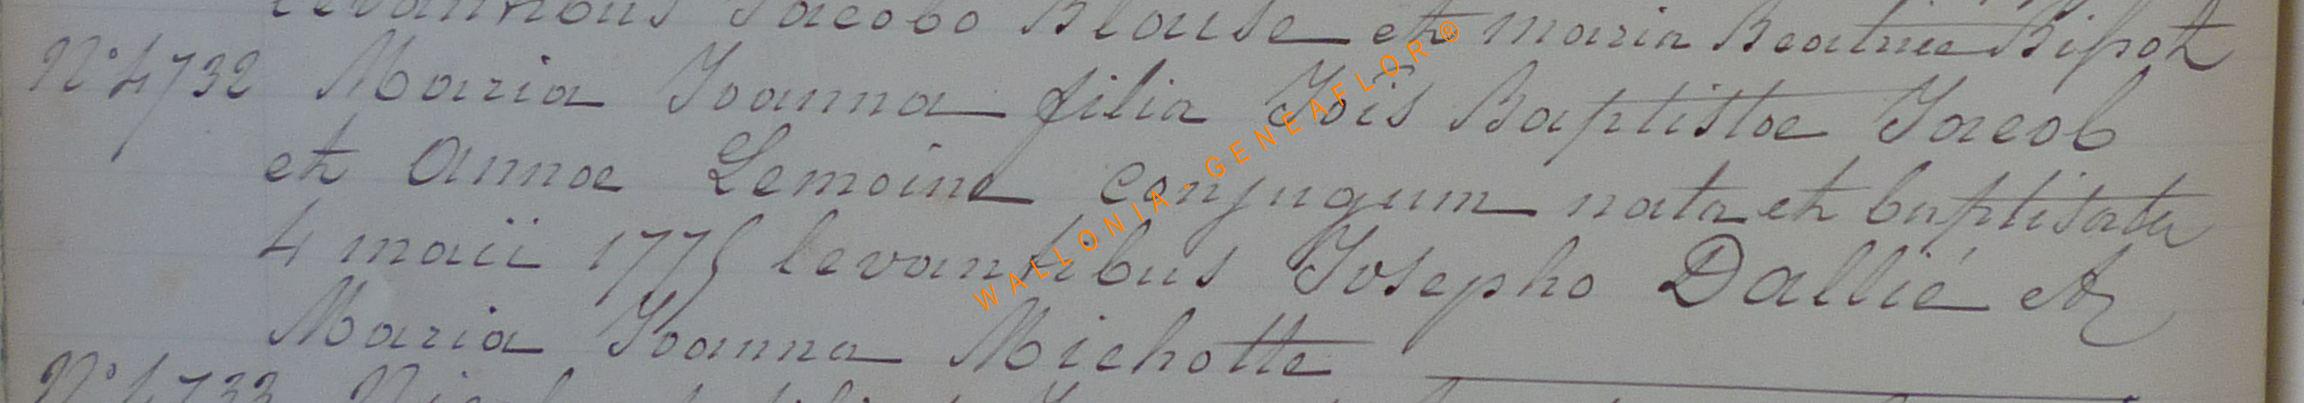 levantibus Jacobo Blause et Maria Beatrice Bifot
N° 4732 Maria Joanna filia Jois Baptistae Jacob
et Annae Lemoine conjugum nata et baptisata
4 maii 1775 levantibus Josepho Dallié et
Maria Joanna Michotte
N° 4733
WALLONIA - GENEAFLOR®